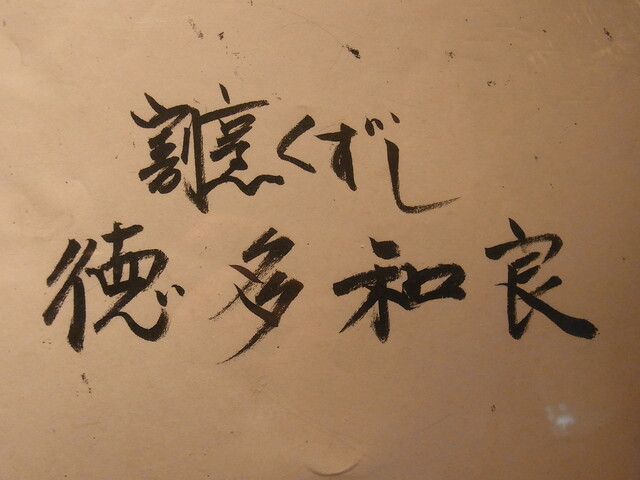 割烹くずし
徳多和良